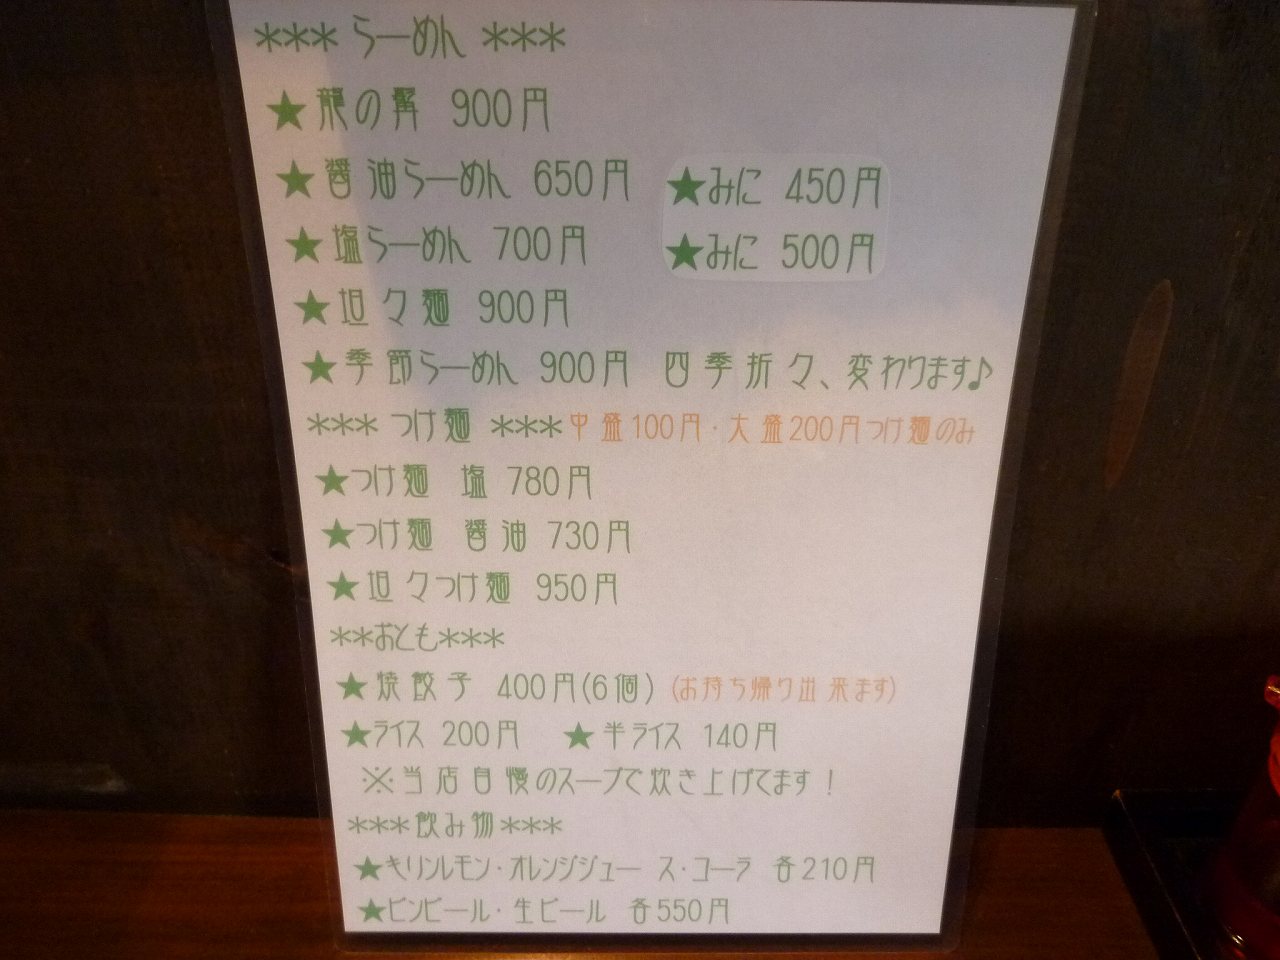 *** らーめん ***
★龍の髯 900円
★醤油らーめん 650円 ★みに 450円
★塩らーめん 700円 ★みに 500円
★坦々麺 900円
★季節らーめん 900円 四季折々、変わります♪
*** つけ麺 *** 中盛100円・大盛200円つけ麺のみ
★つけ麺 塩 780円
★つけ麺 醤油 730円
★坦々つけ麺 950円
**おとも***
★焼餃子 400円(6個) (お持ち帰り出来ます)
★ライス 200円 ★半ライス 140円
※当店自慢のスープで炊き上げてます!
***飲み物***
★キリンレモン・オレンジジュース・コーラ 各210円
★ビンビール・生ビール 各550円